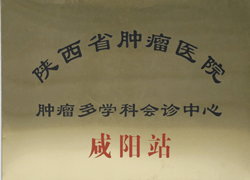 陕西省肿瘤医院
肿瘤多学科会诊中心
咸阳站